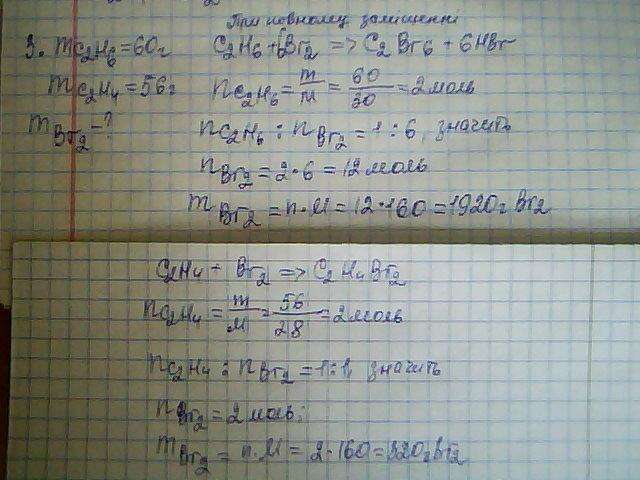 При повному заміщенні
3. mC₂H₆=60г C₂H₆+6Br₂ => C₂Br₆ + 6HBr
mC₂H₄=56г nC₂H₆=m/M=60/30=2моль
mBr₂-? nC₂H₆:nBr₂=1:6, значить
nBr₂=2·6=12моль
mBr₂=n·M=12·160=1920г Br₂
C₂H₄ + Br₂ => C₂H₄Br₂
nC₂H₄=m/M=56/28=2моль
nC₂H₄:nBr₂=1:1, значить
nBr₂=2моль;
mBr₂=n·M=2·160=320гBr₂